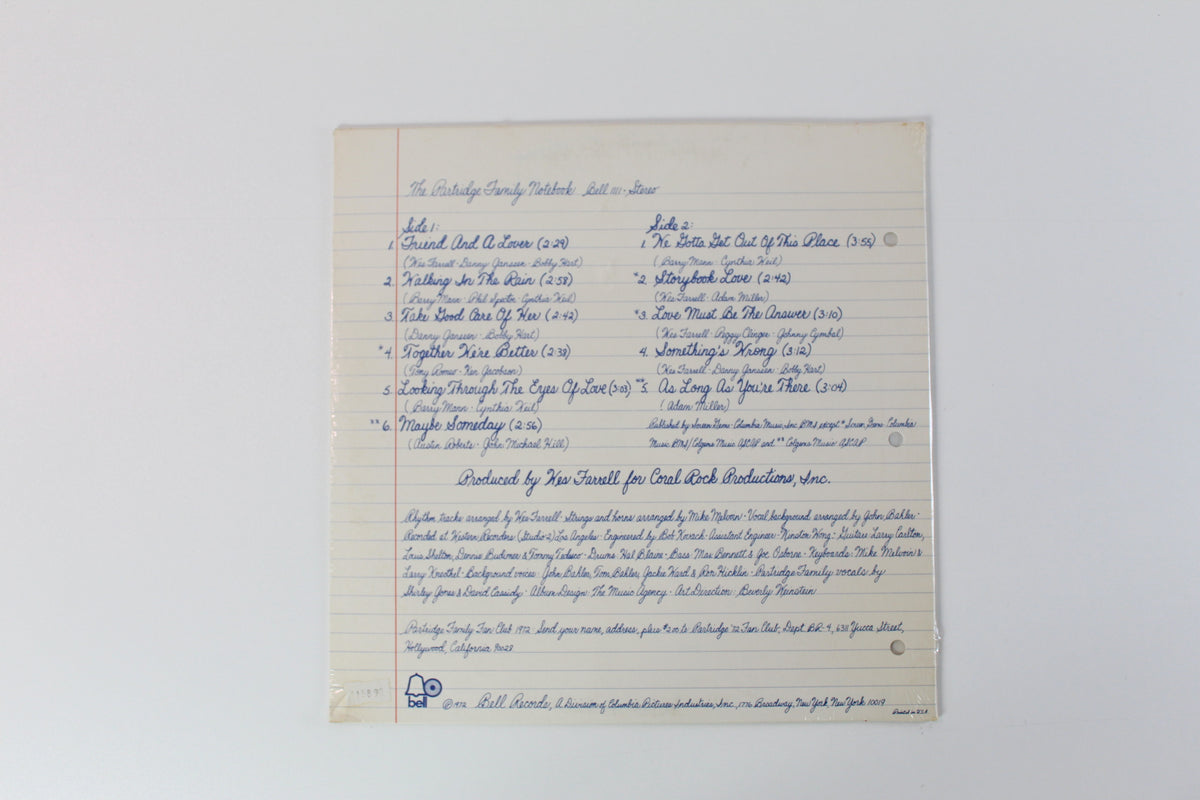 The Partridge Family Notebook Bell 1111 · Stereo
Side 1:
1. Friend And A Lover (2:29)
(Wes Farrell · Danny Janssen · Bobby Hart)
2. Walking In The Rain (2:58)
(Barry Mann · Phil Spector · Cynthia Weil)
3. Take Good Care Of Her (2:42)
(Danny Janssen · Bobby Hart)
*4. Together We're Better (2:38)
(Tony Romeo · Ken Jacobson)
5. Looking Through The Eyes Of Love (3:03)
(Barry Mann · Cynthia Weil)
**6. Maybe Someday (2:56)
(Austin Roberts · John Michael Hill)
Side 2:
1. We Gotta Get Out Of This Place (3:55)
(Barry Mann · Cynthia Weil)
*2. Storybook Love (2:42)
(Wes Farrell · Adam Miller)
*3. Love Must Be The Answer (3:10)
(Wes Farrell · Peggy Clinger · Johnny Cymbal)
4. Something's Wrong (3:12)
(Wes Farrell · Danny Janssen · Bobby Hart)
**5. As Long As You're There (3:04)
(Adam Miller)
Published by Screen Gems-Columbia Music, Inc. BMI except * Screen Gems Columbia
Music BMI/Colgems Music ASCAP and ** Colgems Music ASCAP
Produced by Wes Farrell for Coral Rock Productions, Inc.
Rhythm tracks arranged by Wes Farrell · Strings and horns arranged by Mike Melvoin · Vocal background arranged by John Bahler ·
Recorded at Western Recorders (Studio 2) Los Angeles · Engineered by Bob Kovack · Assistant Engineer · Winston Wong · Guitars: Larry Carlton,
Louie Shelton, Dennis Budimer & Tommy Tedesco · Drums: Hal Blaine · Bass: Max Bennett & Joe Osborne · Keyboards: Mike Melvoin &
Larry Knechtel · Background voices: John Bahler, Tom Bahler, Jackie Ward & Ron Hicklin · Partridge Family vocals by
Shirley Jones & David Cassidy · Album Design: The Music Agency · Art Direction: Beverly Weinstein
Partridge Family Fan Club 1972 · Send your name, address, plus $2.00 to Partridge '72 Fan Club, Dept. BR-4, 6311 Yucca Street,
Hollywood, California 90028
bell
©1972 Bell Records, A Division of Columbia Pictures Industries, Inc., 1776 Broadway, New York, New York 10019
Printed in U.S.A.